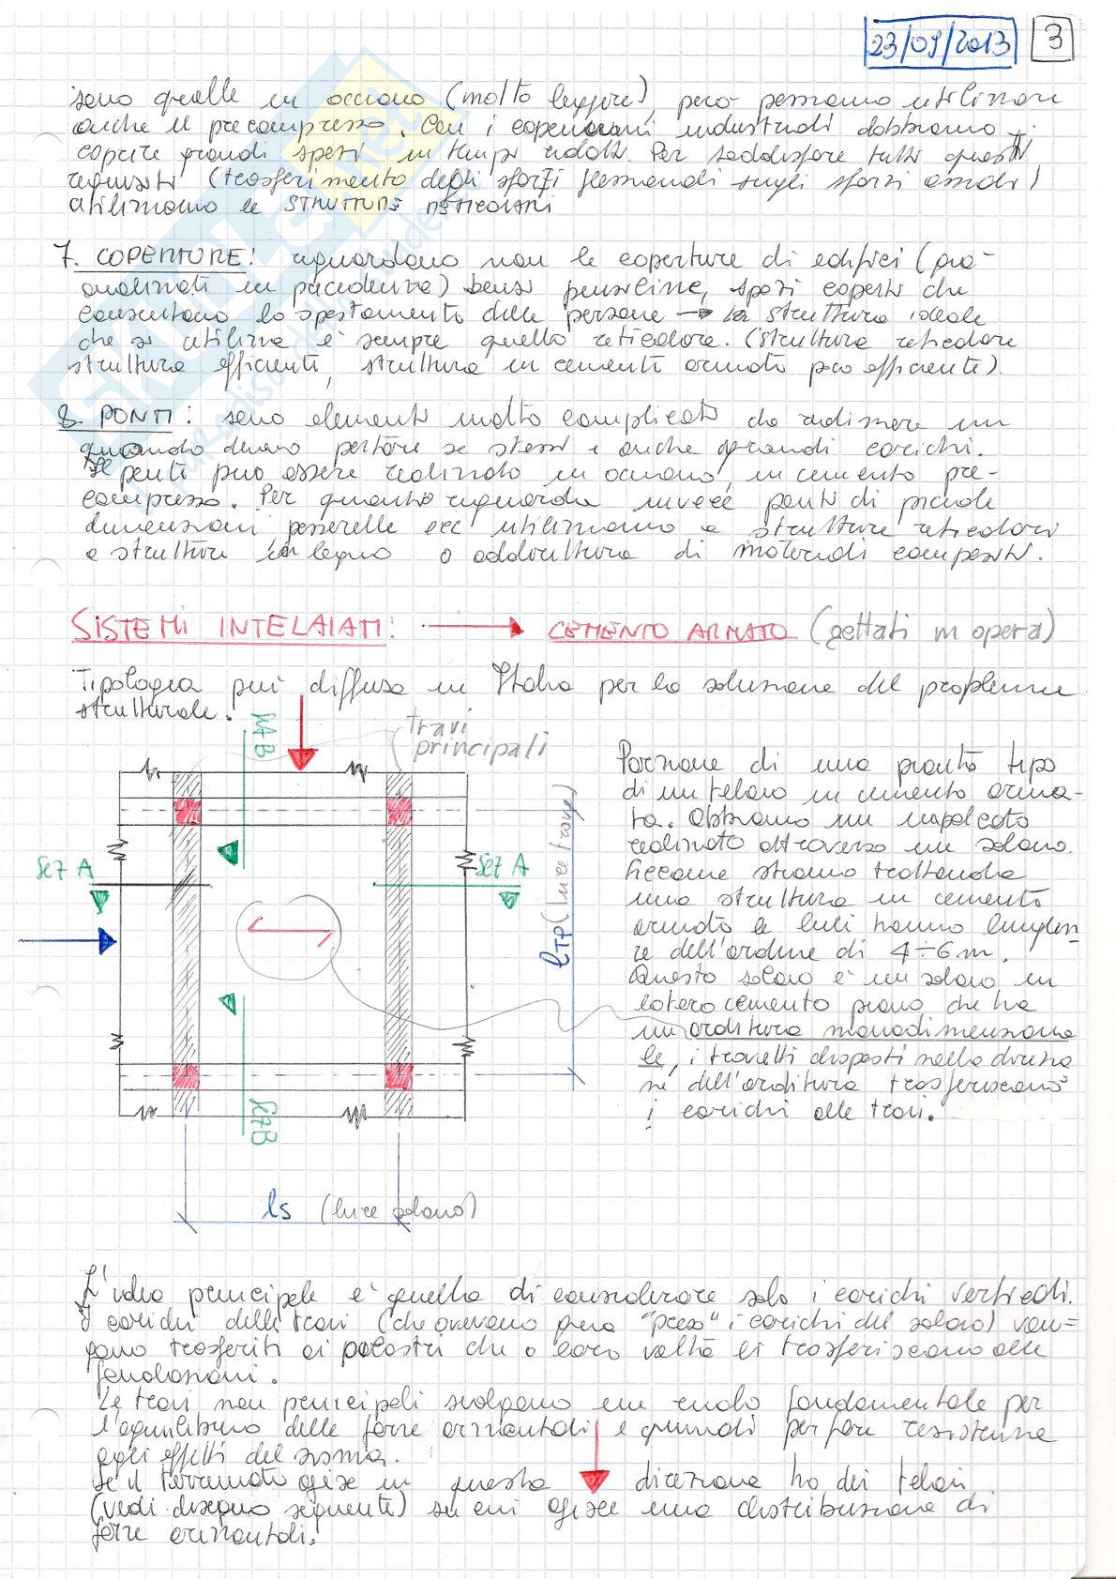 23/09/2013 3
sono quelle in acciaio (molto leggere), però possiamo utilizzare
anche il precompresso. Con i capannoni industriali dobbiamo
coprire grandi spazi in tempi ridotti. Per soddisfare tutti questi
requisiti (trasferimento degli sforzi flessionali sugli sforzi assiali)
utilizziamo le STRUTTURE RETICOLARI
7. COPERTURE: riguardano non le coperture di edifici (già
analizzati in precedenza) bensì pensiline, spazi coperti che
consentano lo spostamento delle persone → la struttura ideale
che si utilizza è sempre quella reticolare. (struttura reticolare
struttura efficiente, struttura in cemento armato poco efficiente).
8. PONTI: sono elementi molto complicati da realizzare in
quanto devono portare se stessi e anche grandi carichi.
Il ponte può essere realizzato in acciaio, in cemento pre-
compresso. Per quanto riguarda invece ponti di piccole
dimensioni passerelle ecc utilizziamo o strutture reticolari
o strutture in legno o addirittura di materiali compositi.
SISTEMI INTELAIATI: → CEMENTO ARMATO (gettati in opera)
Tipologia più diffusa in Italia per la soluzione del problema
strutturale.
Travi
principali
SEZ B
SEZ A
SEZ A
lTP (luce trave)
SEZ B
ls (luce solaio)
Porzione di una pianta tipo
di un telaio in cemento arma-
to. Abbiamo un impalcato
realizzato attraverso un solaio.
Siccome stiamo trattando
una struttura in cemento
armato le luci hanno lunghez-
ze dell'ordine di 4÷6 m.
Questo solaio è un solaio in
laterocemento piano che ha
un'orditura monodimensiona
le, i travetti disposti nella direzio
ne dell'orditura trasferiscono
i carichi alle travi.
L'idea principale è quella di considerare solo i carichi verticali.
I carichi delle travi (che avevano preso "peso" i carichi del solaio) ven=
gono trasferiti ai pilastri che a loro volta li trasferiscono alle
fondazioni.
Le travi non principali svolgono un ruolo fondamentale per
l'equilibrio delle forze orizzontali e quindi per fare resistenza
agli effetti del sisma.
Se il terremoto agisce in questa direzione ho dei telai
(vedi disegno seguente) su cui agisce una distribuzione di
forze orizzontali.